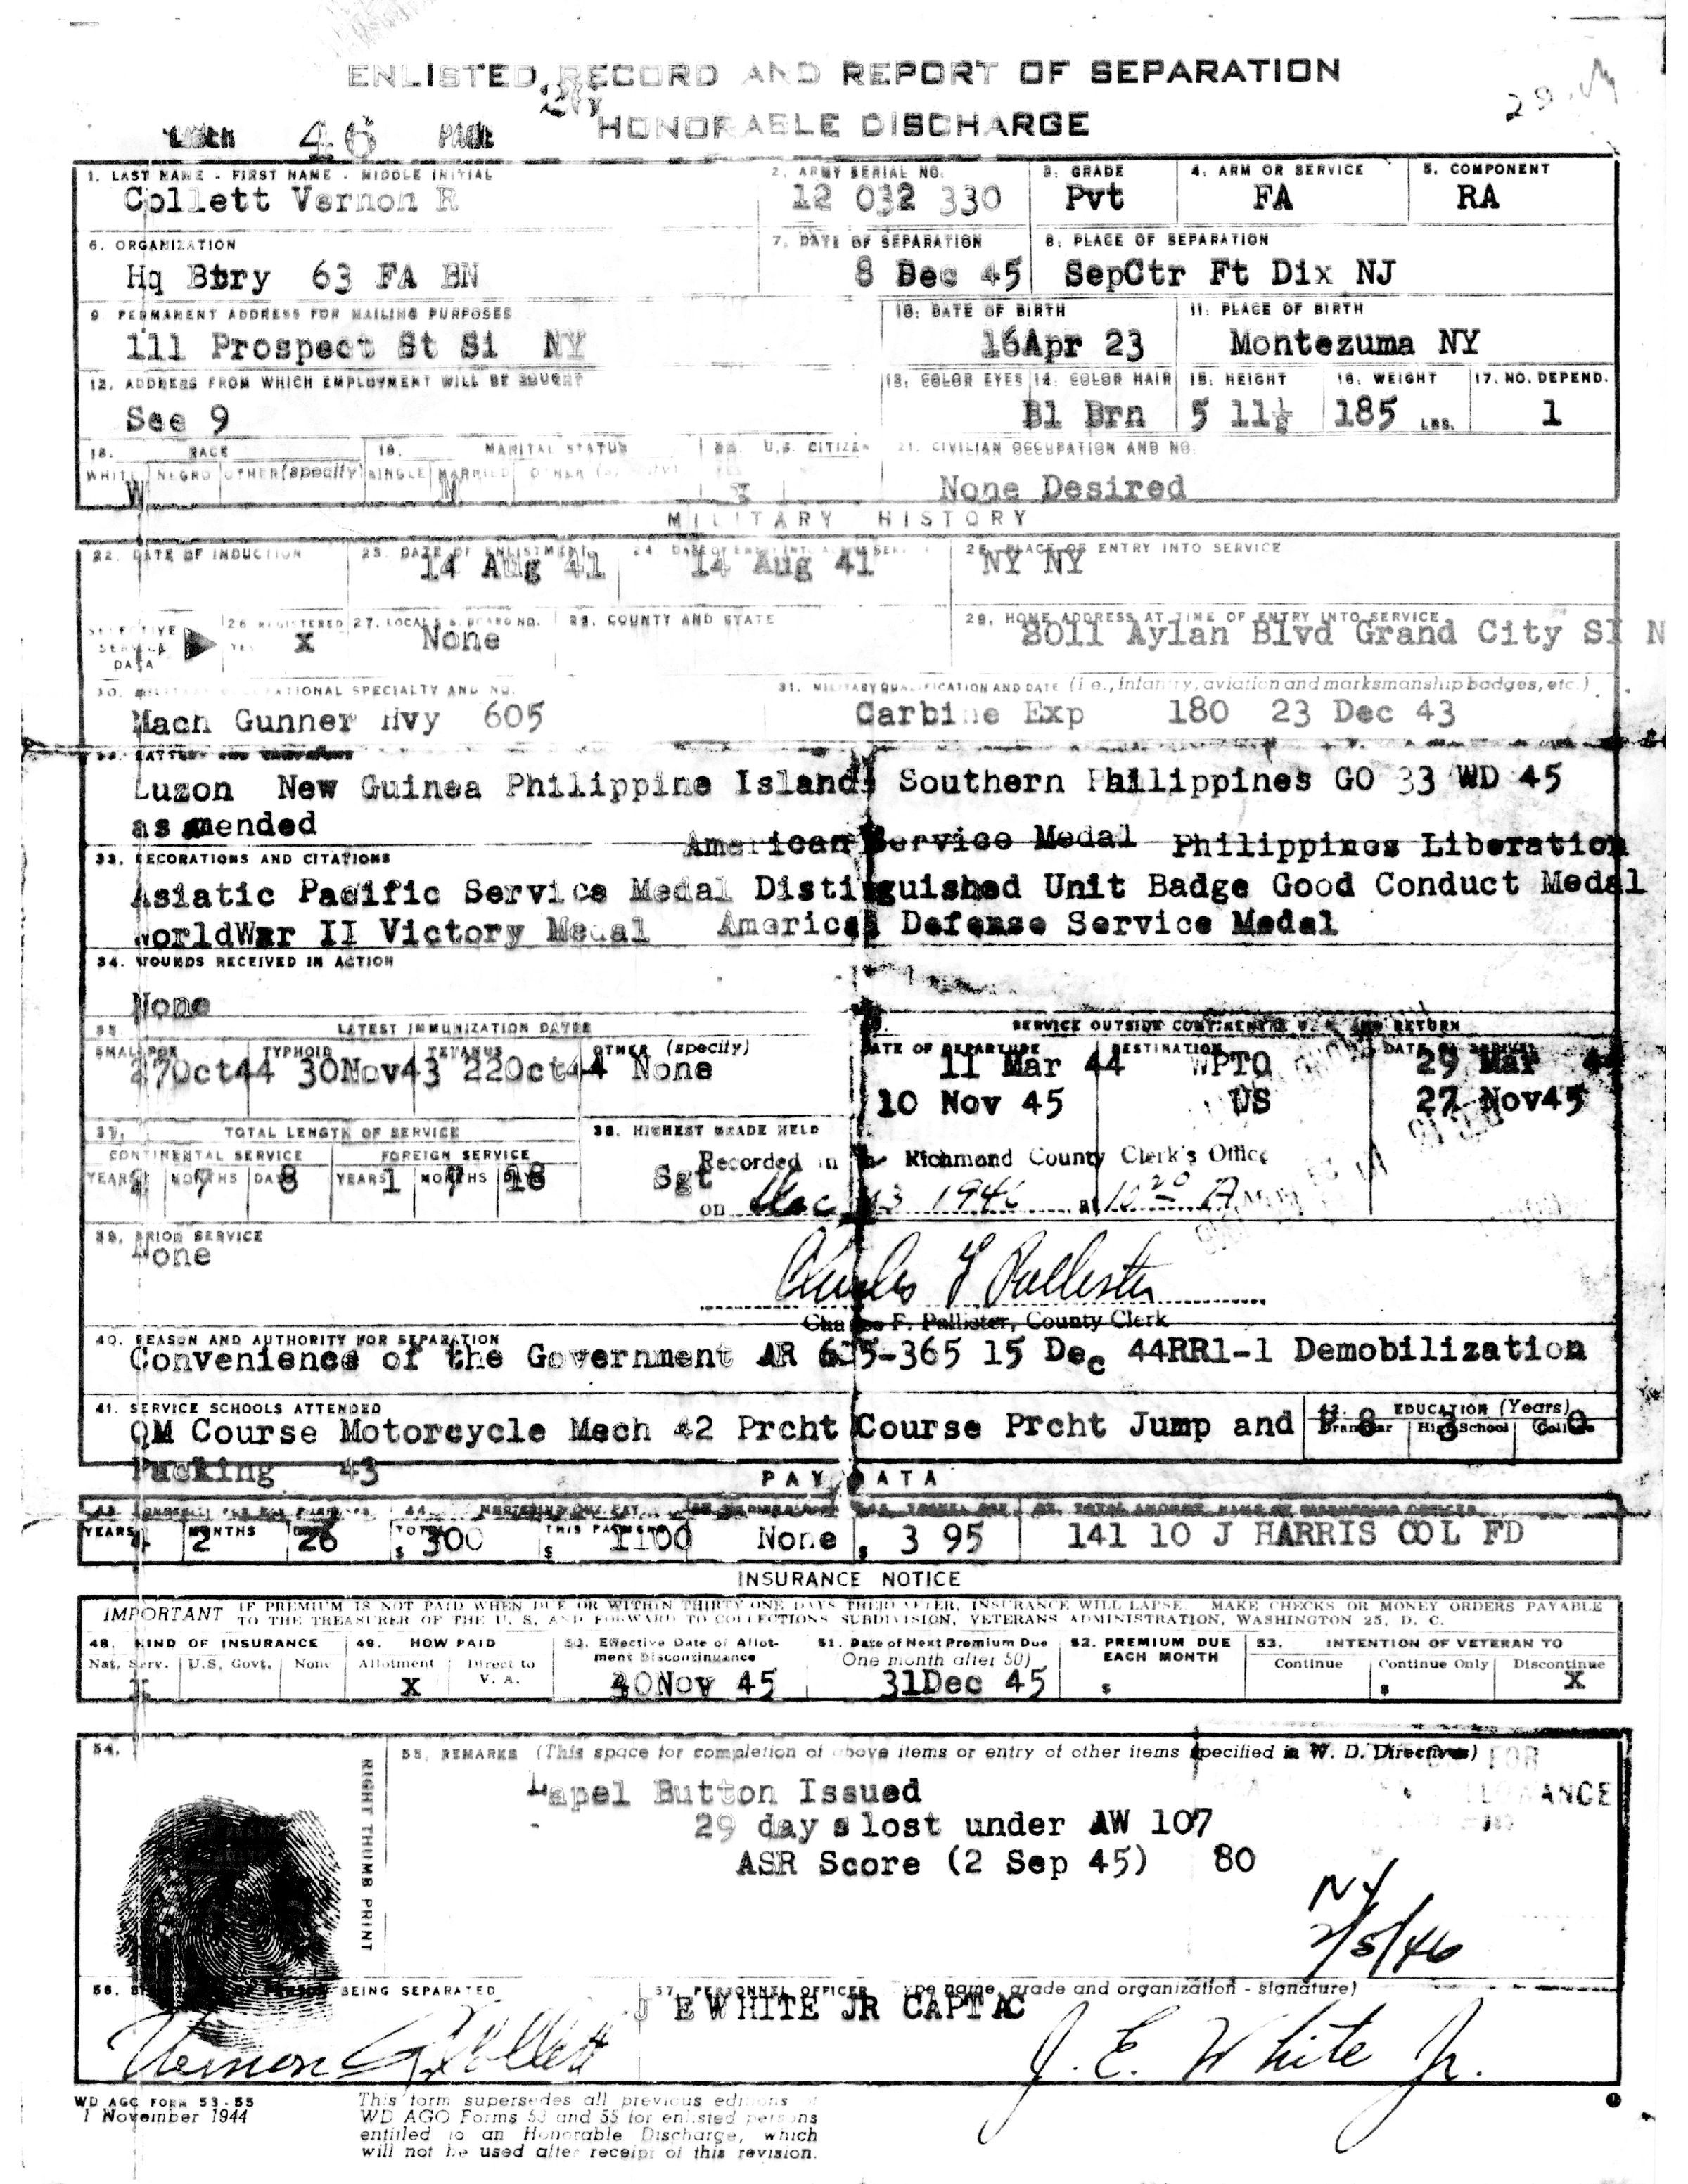 ENLISTED RECORD AND REPORT OF SEPARATION
HONORABLE DISCHARGE
46 PAGE
1. LAST NAME - FIRST NAME - MIDDLE INITIAL
Collett Vernon R
2. ARMY SERIAL NO.
12 032 330
3. GRADE
Pvt
4. ARM OR SERVICE
FA
5. COMPONENT
RA
6. ORGANIZATION
Hq Btry 63 FA BN
7. DATE OF SEPARATION
8 Dec 45
8. PLACE OF SEPARATION
SepCtr Ft Dix NJ
9 PERMANENT ADDRESS FOR MAILING PURPOSES
111 Prospect St Si NY
10. DATE OF BIRTH
16Apr 23
11. PLACE OF BIRTH
Montezuma NY
12. ADDRESS FROM WHICH EMPLOYMENT WILL BE SOUGHT
See 9
13. COLOR EYES
Bl
14. COLOR HAIR
Brn
15. HEIGHT
5 11½
16. WEIGHT
185 LBS.
17. NO. DEPEND.
1
18. RACE
WHITE NEGRO OTHER (specify)
W
19. MARITAL STATUS
SINGLE MARRIED OTHER
M
U.S. CITIZEN
X
21. CIVILIAN OCCUPATION AND NO.
None Desired
MILITARY HISTORY
22. DATE OF INDUCTION
23. DATE OF ENLISTMENT
14 Aug 41
24. DATE OF ENTRY INTO ACTIVE SER.
14 Aug 41
25. PLACE OF ENTRY INTO SERVICE
NY NY
SELECTIVE SERVICE DATA
26 REGISTERED
YES
X
27. LOCAL S.S. BOARD NO.
None
28. COUNTY AND STATE
29. HOME ADDRESS AT TIME OF ENTRY INTO SERVICE
2011 Aylan Blvd Grand City SI N
30. MILITARY OCCUPATIONAL SPECIALTY AND NO.
Mach Gunner Hvy 605
31. MILITARY QUALIFICATION AND DATE (i e., infantry, aviation and marksmanship badges, etc.)
Carbine Exp 180 23 Dec 43
32. BATTLES AND CAMPAIGNS
Luzon New Guinea Philippine Islands Southern Philippines GO 33 WD 45
as amended
American Service Medal Philippines Liberation
33. DECORATIONS AND CITATIONS
Asiatic Pacific Service Medal Distinguished Unit Badge Good Conduct Medal
WorldWar II Victory Medal American Defense Service Medal
34. WOUNDS RECEIVED IN ACTION
None
35. LATEST IMMUNIZATION DATES
SMALLPOX TYPHOID TETANUS OTHER (specify)
27Oct44 30Nov43 22Oct44 None
36. SERVICE OUTSIDE CONTINENTAL U.S. AND RETURN
DATE OF DEPARTURE DESTINATION DATE OF ARRIVAL
11 Mar 44 WPTO 29 Mar 44
10 Nov 45 US 27 Nov45
37. TOTAL LENGTH OF SERVICE
CONTINENTAL SERVICE FOREIGN SERVICE
YEARS MONTHS DAYS YEARS MONTHS DAYS
2 7 8 1 7 18
38. HIGHEST GRADE HELD
Sgt
Recorded in the Richmond County Clerk's Office
on Dec 13 1946 at 10 20 A
39. PRIOR SERVICE
None
Charles F Pallister
Charles F. Pallister, County Clerk
40. REASON AND AUTHORITY FOR SEPARATION
Convenience of the Government AR 615-365 15 Dec 44RR1-1 Demobilization
41. SERVICE SCHOOLS ATTENDED
QM Course Motorcycle Mech 42 Prcht Course Prcht Jump and P
Packing 43
42. EDUCATION (Years)
Grammar High School College
8 3 0
PAY DATA
YEARS MONTHS
4 2 26
TOTAL THIS PAYMENT
$ 300 $ 1100
None
$ 3 95
141 10 J HARRIS COL FD
INSURANCE NOTICE
IMPORTANT IF PREMIUM IS NOT PAID WHEN DUE OR WITHIN THIRTY ONE DAYS THEREAFTER, INSURANCE WILL LAPSE. MAKE CHECKS OR MONEY ORDERS PAYABLE
TO THE TREASURER OF THE U. S. AND FORWARD TO COLLECTIONS SUBDIVISION, VETERANS ADMINISTRATION, WASHINGTON 25, D. C.
48. KIND OF INSURANCE
Nat. Serv. U.S. Govt. None
X
49. HOW PAID
Allotment Direct to V. A.
X
50. Effective Date of Allotment Discontinuance
30Nov 45
51. Date of Next Premium Due
One month after 50)
31Dec 45
52. PREMIUM DUE EACH MONTH
$
53. INTENTION OF VETERAN TO
Continue Continue Only Discontinue
$ X
54.
RIGHT THUMB PRINT
55. REMARKS (This space for completion of above items or entry of other items specified in W. D. Directives)
Lapel Button Issued
29 days lost under AW 107
ASR Score (2 Sep 45) 80
NY
2/5/46
56. SIGNATURE OF PERSON BEING SEPARATED
Vernon R Collett
57. PERSONNEL OFFICER (Type name, grade and organization - signature)
J E WHITE JR CAPT AC
J. E. White Jr.
WD AGO FORM 53-55
1 November 1944
This form supersedes all previous editions of
WD AGO Forms 53 and 55 for enlisted persons
entitled to an Honorable Discharge, which
will not be used after receipt of this revision.